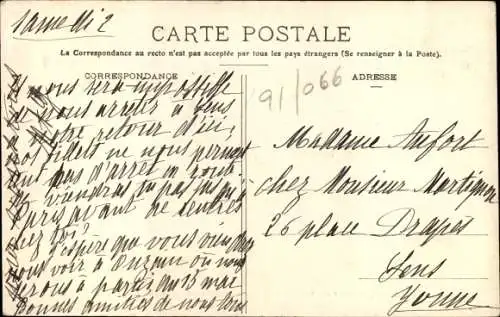 Samedi 2
CARTE POSTALE
La Correspondance au recto n'est pas acceptée par tous les pays étrangers (Se renseigner à la Poste).
CORRESPONDANCE
ADRESSE
91/066
Il nous sera impossible
de nous arrêter à Sens
notre retour d'ici,
nos billets ne nous permet
tant pas d'arrêt en route.
viendras tu pas jusqu'
Paris avant de rentrer
chez toi?
J'espère que vous viendrez
nous voir à Ouzouer où nous
serons à partir du 15 mai
Bonnes amitiés de nous tous
Madame Aufort
chez Monsieur Martignon
26 place Drapès
Sens
Yonne